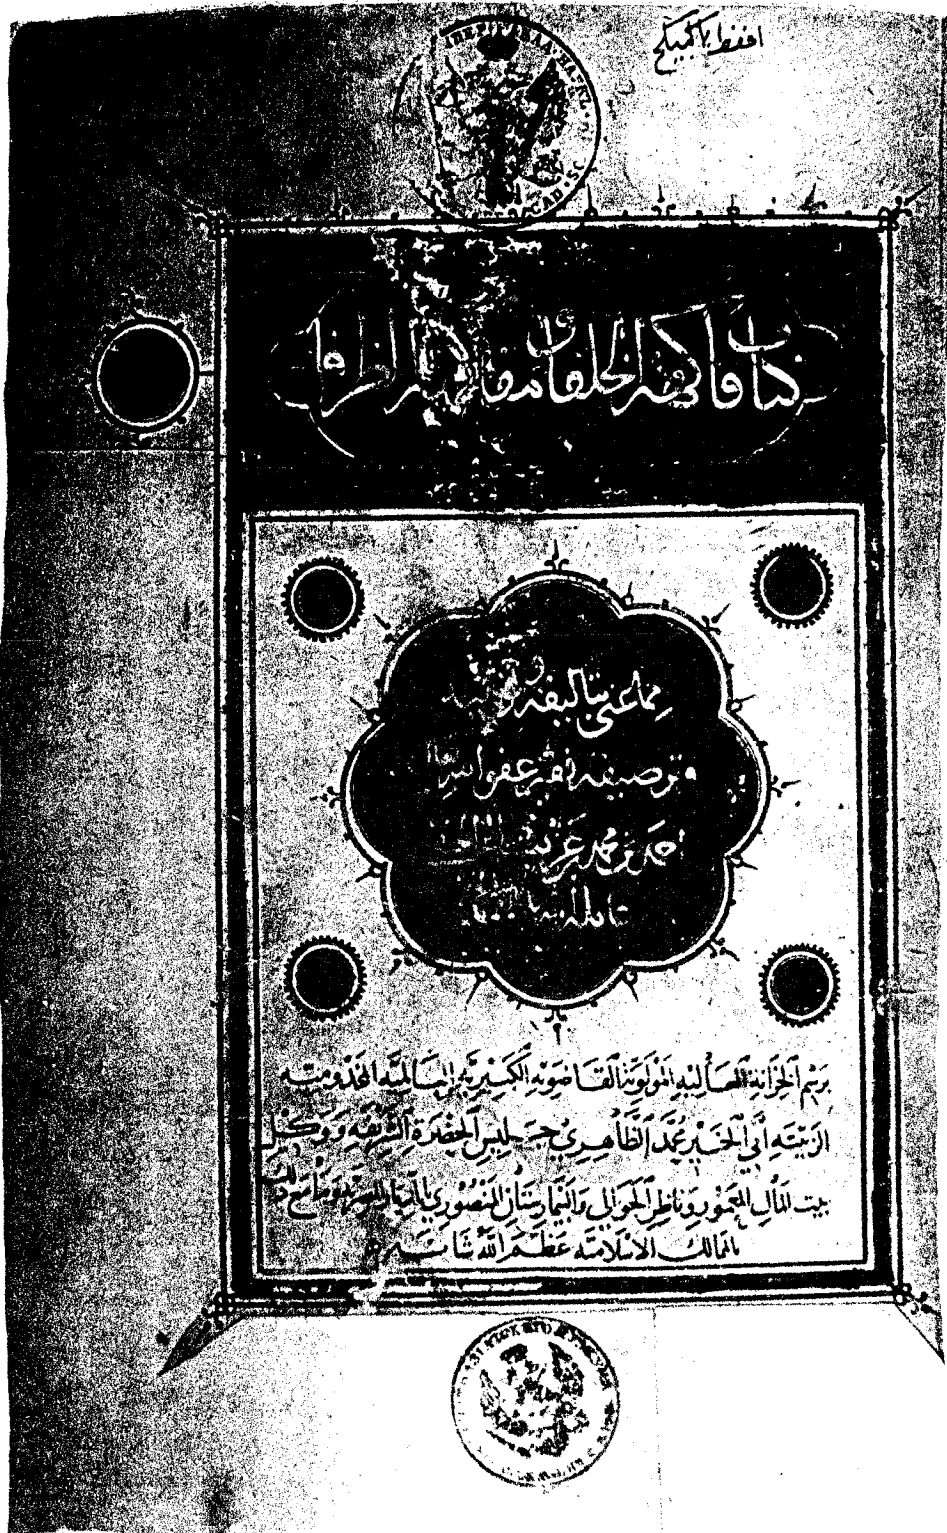 احفظ يا كبيكج
كتاب فاكهة الخلفا ومفاكهة الظرفا
مما عني بتاليفه و
وترصيفه فقير عفو الله
احمد بن محمد عرب
برسم الخزانة العالية المولوية القاضوية الكبيرية العالمية المخدومية
الزينية أبي الخير محمد الظاهري جليس الحضرة الشريفة ووكيل
بيت المال المعمور وناظر الجوالي والبيمارستان المنصوري بالديار المصرية وما مع ذلك
بالممالك الاسلامية عظم الله شانه